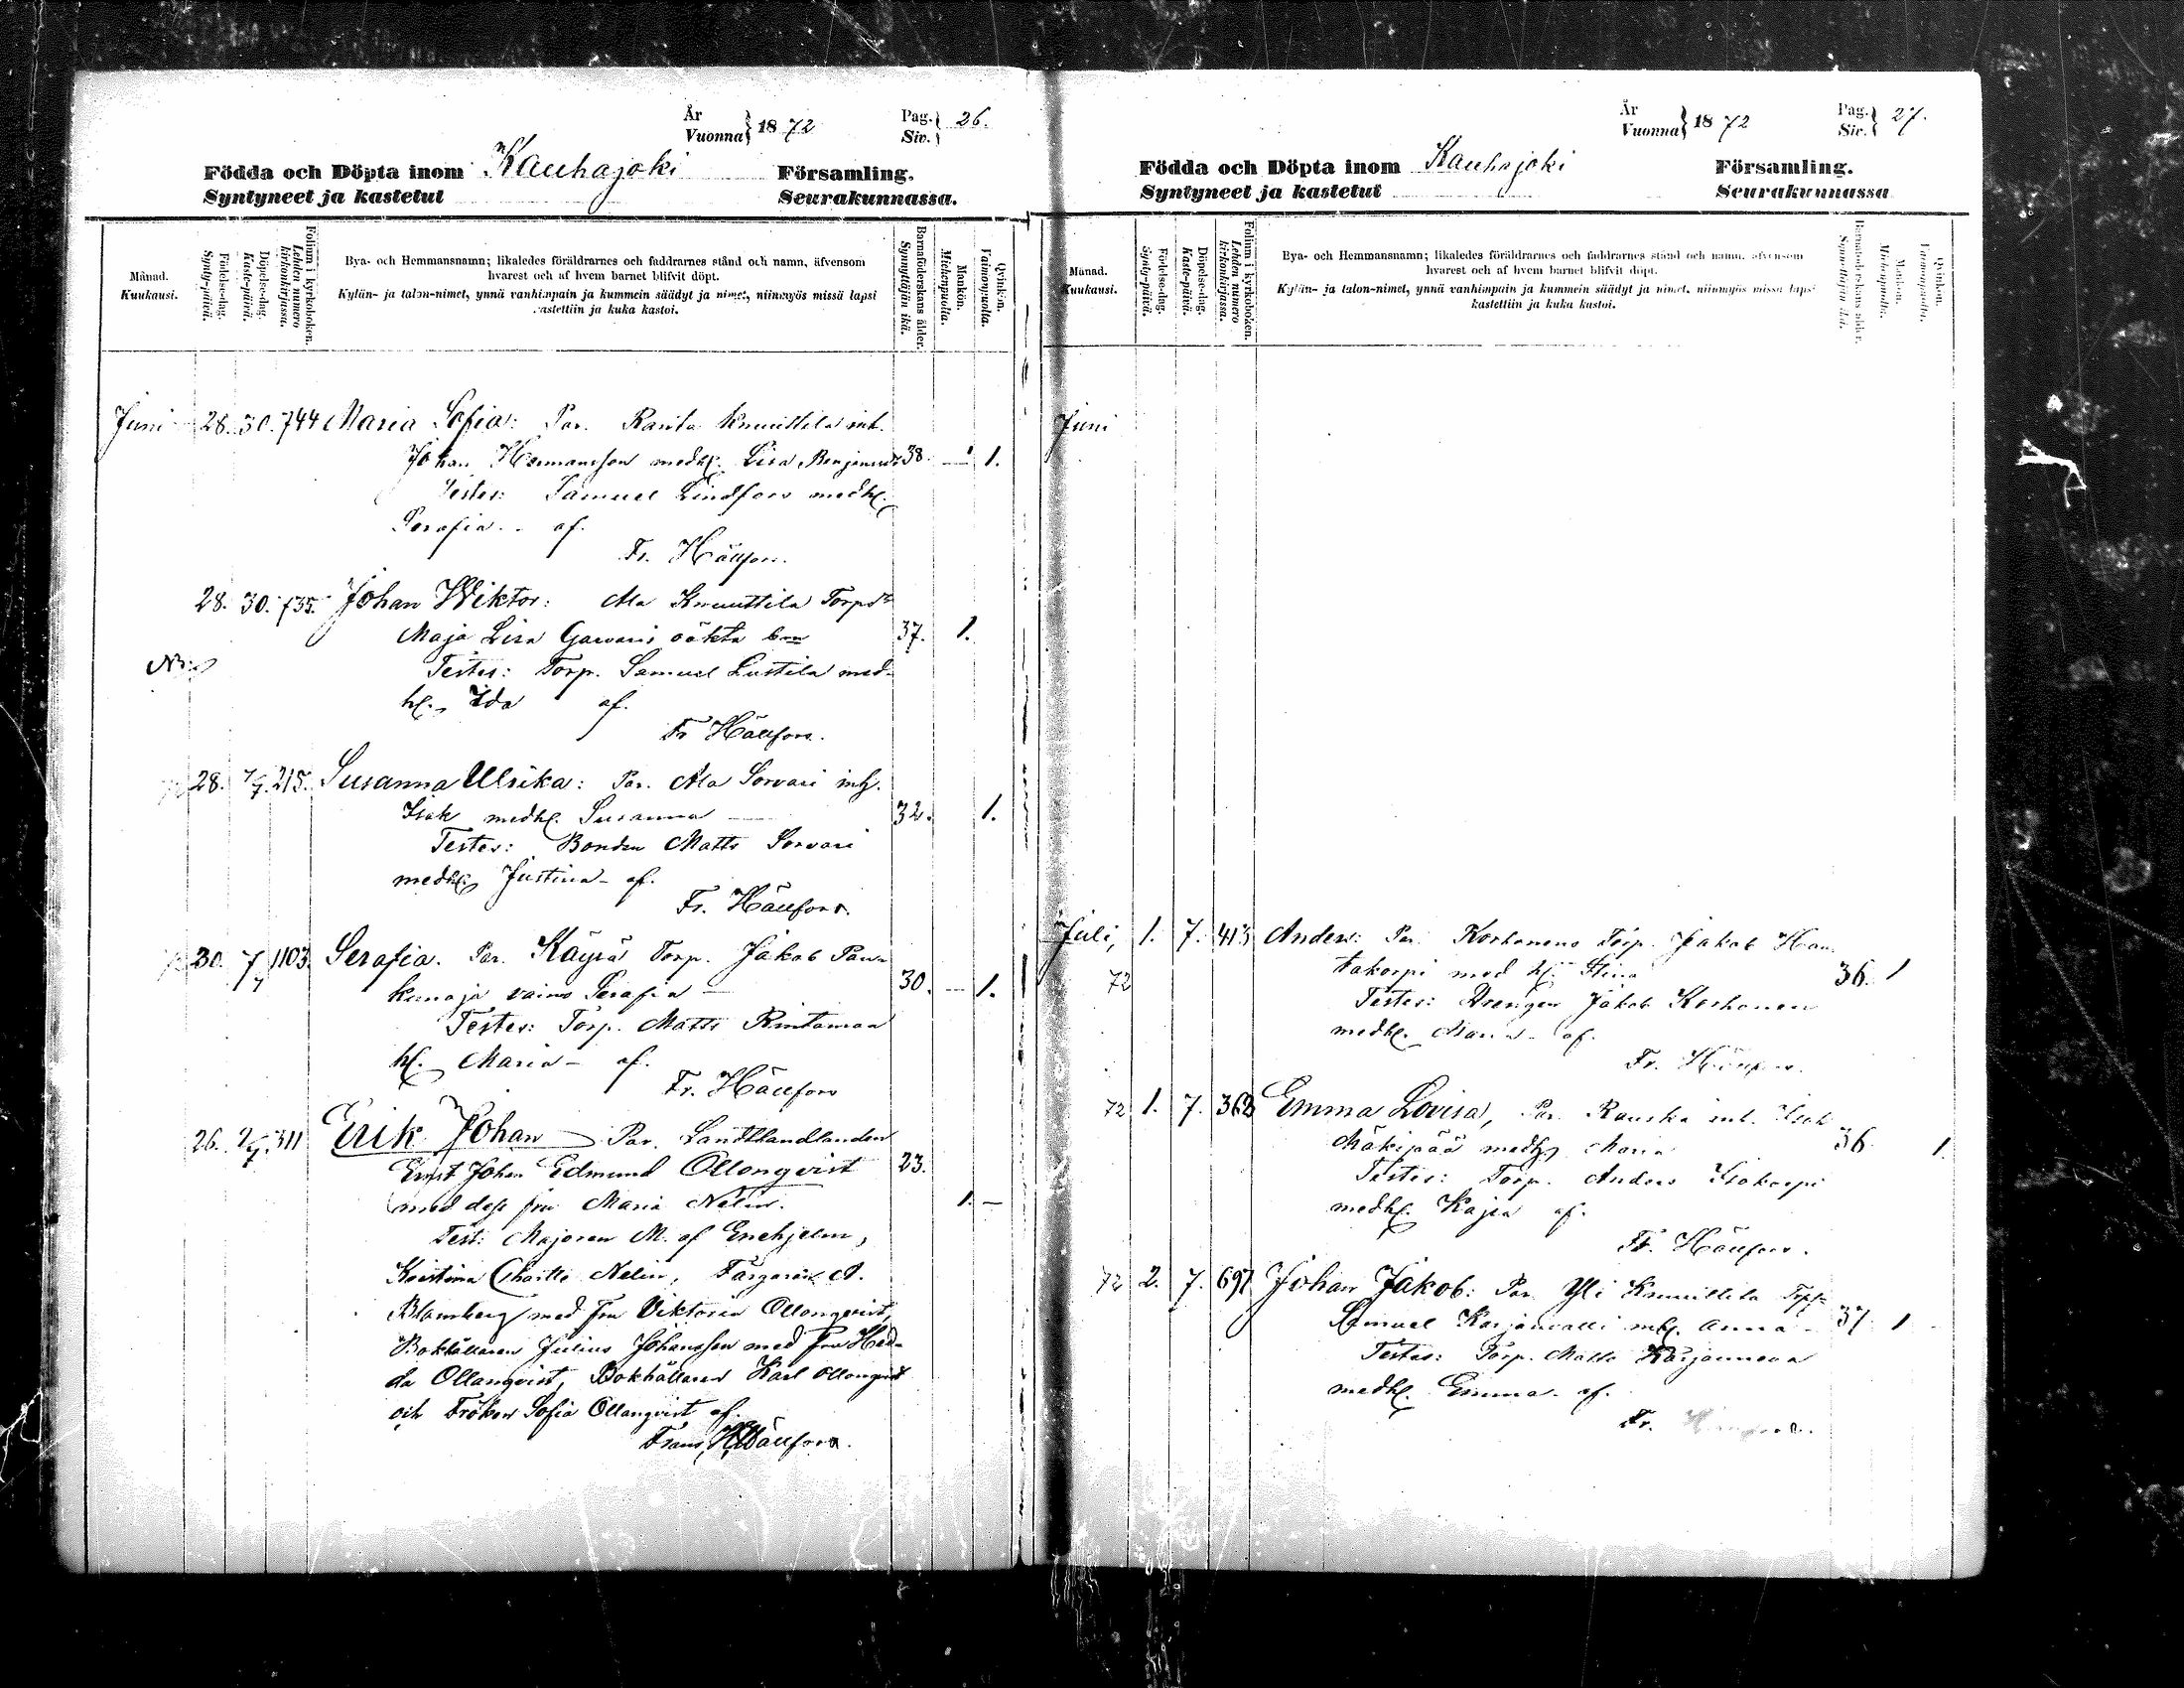 År
Vuonna } 1872
Pag.
Siv. } 26.
Födda och Döpta inom Kauhajoki Församling.
Syntyneet ja kastetut Seurakunnassa.
Månad.
Kuukausi.
Födelse-dag.
Synty-päivä.
Döpelse-dag.
Kaste-päivä.
Folium i kyrkoboken.
Lehden numero kirkonkirjassa.
Bya- och Hemmansnamn; likaledes föräldrarnes och faddrarnes stånd och namn, äfvensom
hvarest och af hvem barnet blifvit döpt.
Kylän- ja talon-nimet, ynnä vanhimpain ja kummein säädyt ja nimet, niinmyös missä lapsi
kastettiin ja kuka kastoi.
Barnaföderskans ålder.
Synnyttäjän ikä.
Mankön.
Miehenpuolia.
Qvinkön.
Vaimonpuolia.
Juni 28. 30. 744 Maria Sofia: Par. Ranta Knuuttila inh.
Johan Hermansson medh. Lisa 38. 1.
Testes: Samuel Lindfors medh.
Serafia - af.
Fr. Hällfors.
28. 30. 735. Johan Wiktor: Ala Knuuttila Torpdr
Maja Lisa oäkta 37. 1.
Testes: Torp. Samuel Lustila med
h. Ida af.
Fr Hällfors.
28. 7/7. 215. Susanna Ulrika: Par. Ala Sorvari inh.
Isak medh. Susanna 32. 1.
Testes: Bonden Matts Sorvari
medh. Justina - af.
Fr. Hällfors.
30. 7/7 1103. Serafia. Par. Käyrä Torp. Jakob
ja vaimo Serafia 30. 1.
Testes: Torp. Matts Rintamaa
h. Maria - af.
Fr. Hällfors
26. 311 Erik Johan Par.
Ernst Johan Edmund Ollonqvist 23.
med dess fru Maria Nelin. 1. -
Test: Majoren M. af Enehjelm,
Kristina Charlotte Nelin, Färgaren A.
Blomberg med Fru Viktoria Ollonqvist,
Bokhållaren Julius Johansson med Fru Hed-
da Ollonqvist, Bokhållaren Karl Ollonqvist
och Fröken Sofia Ollonqvist af.
Frans Hällfors.
År
Vuonna } 1872
Pag.
Siv. } 27.
Födda och Döpta inom Kauhajoki Församling.
Syntyneet ja kastetut Seurakunnassa
Månad.
Kuukausi.
Födelse-dag.
Synty-päivä.
Döpelse-dag.
Kaste-päivä.
Folium i kyrkoboken.
Lehden numero kirkonkirjassa.
Bya- och Hemmansnamn; likaledes föräldrarnes och faddrarnes stånd och namn, äfvensom
hvarest och af hvem barnet blifvit döpt.
Kylän- ja talon-nimet, ynnä vanhimpain ja kummein säädyt ja nimet, niinmyös missä lapsi
kastettiin ja kuka kastoi.
Barnaföderskans ålder.
Synnyttäjän ikä.
Mankön.
Miehenpuolia.
Qvinkön.
Vaimonpuolia.
Juni
Juli, 1. 7. 413 Anders: Par. Korhonens Torp. Jakob Hau
takorpi med h. Stina 36. 1
72
Testes: Drengen Jakob Korhonen
medh. Maria - af.
Fr. Hällfors.
72 1. 7. 363 Emma Lovisa, Par. Rauska inh. Isak
Mäkipää medh. Maria 36 1.
Testes: Torp. Anders Isokorpi
medh. Kajsa af.
Fr. Hällfors.
72 2. 7. 697 Johan Jakob: Par. Yli Knuuttila Torp
Samuel mh. Anna - 37 1
Testes: Torp. Matts
medh. Emma - af.
Fr. Hällfors.